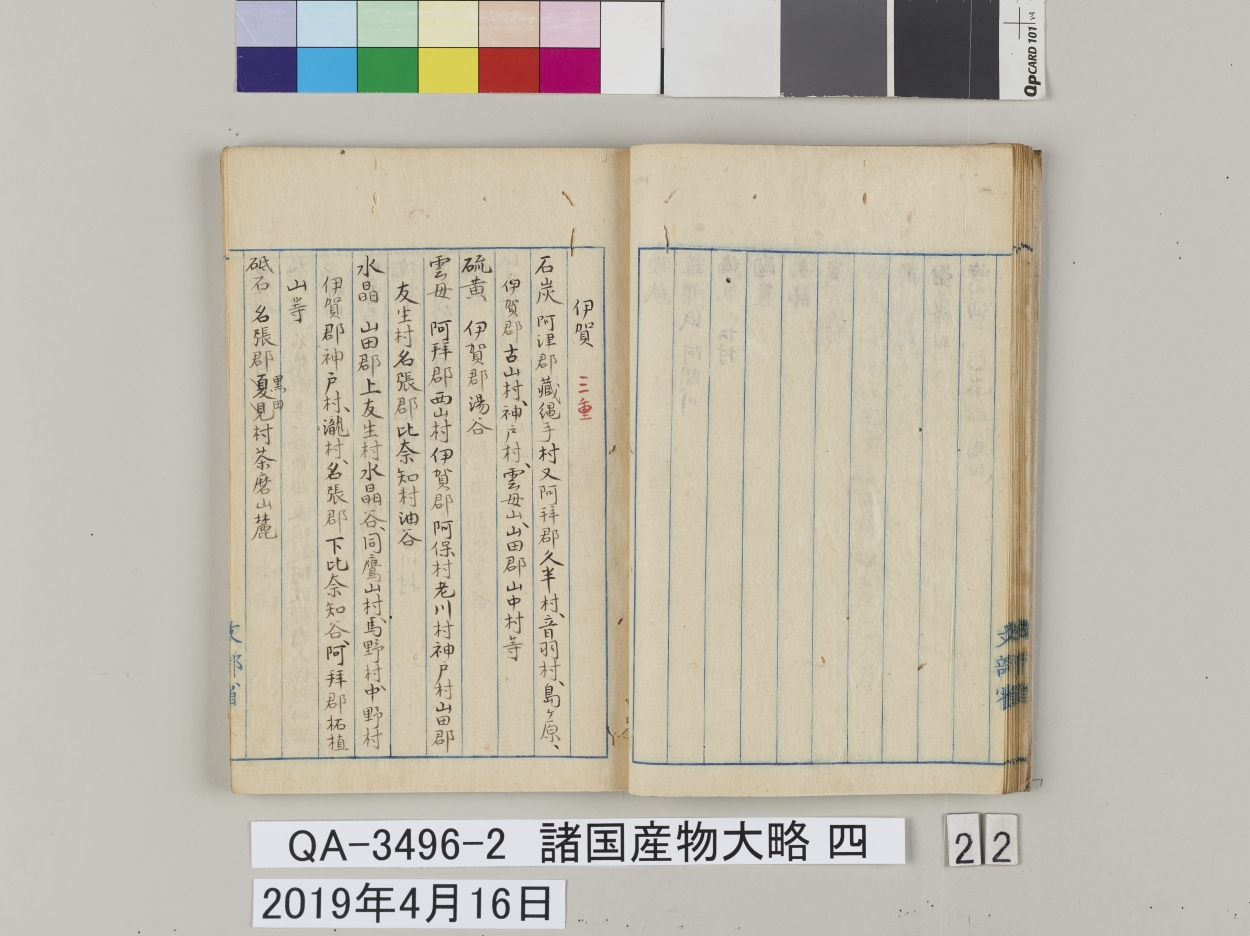 QpCARD 101 v4
伊賀 三重
石炭 阿津郡藏縄手村又阿拜郡久半村、音羽村、島ヶ原、
伊賀郡古山村、神戸村、雲母山、山田郡山中村等
硫黄 伊賀郡湯谷
雲母 阿拜郡西山村伊賀郡阿保村老川村神戸村山田郡
友生村名張郡比奈知村油谷
水晶 山田郡上友生村水晶谷、同鷹山村、馬野村、中野村
伊賀郡神戸村、瀧村、名張郡下比奈知谷、阿拜郡柘植
山等
砥石 名張郡夏見村茶磨山麓
黒田
文部省
文部省
QA-3496-2 諸国産物大略 四
22
2019年4月16日